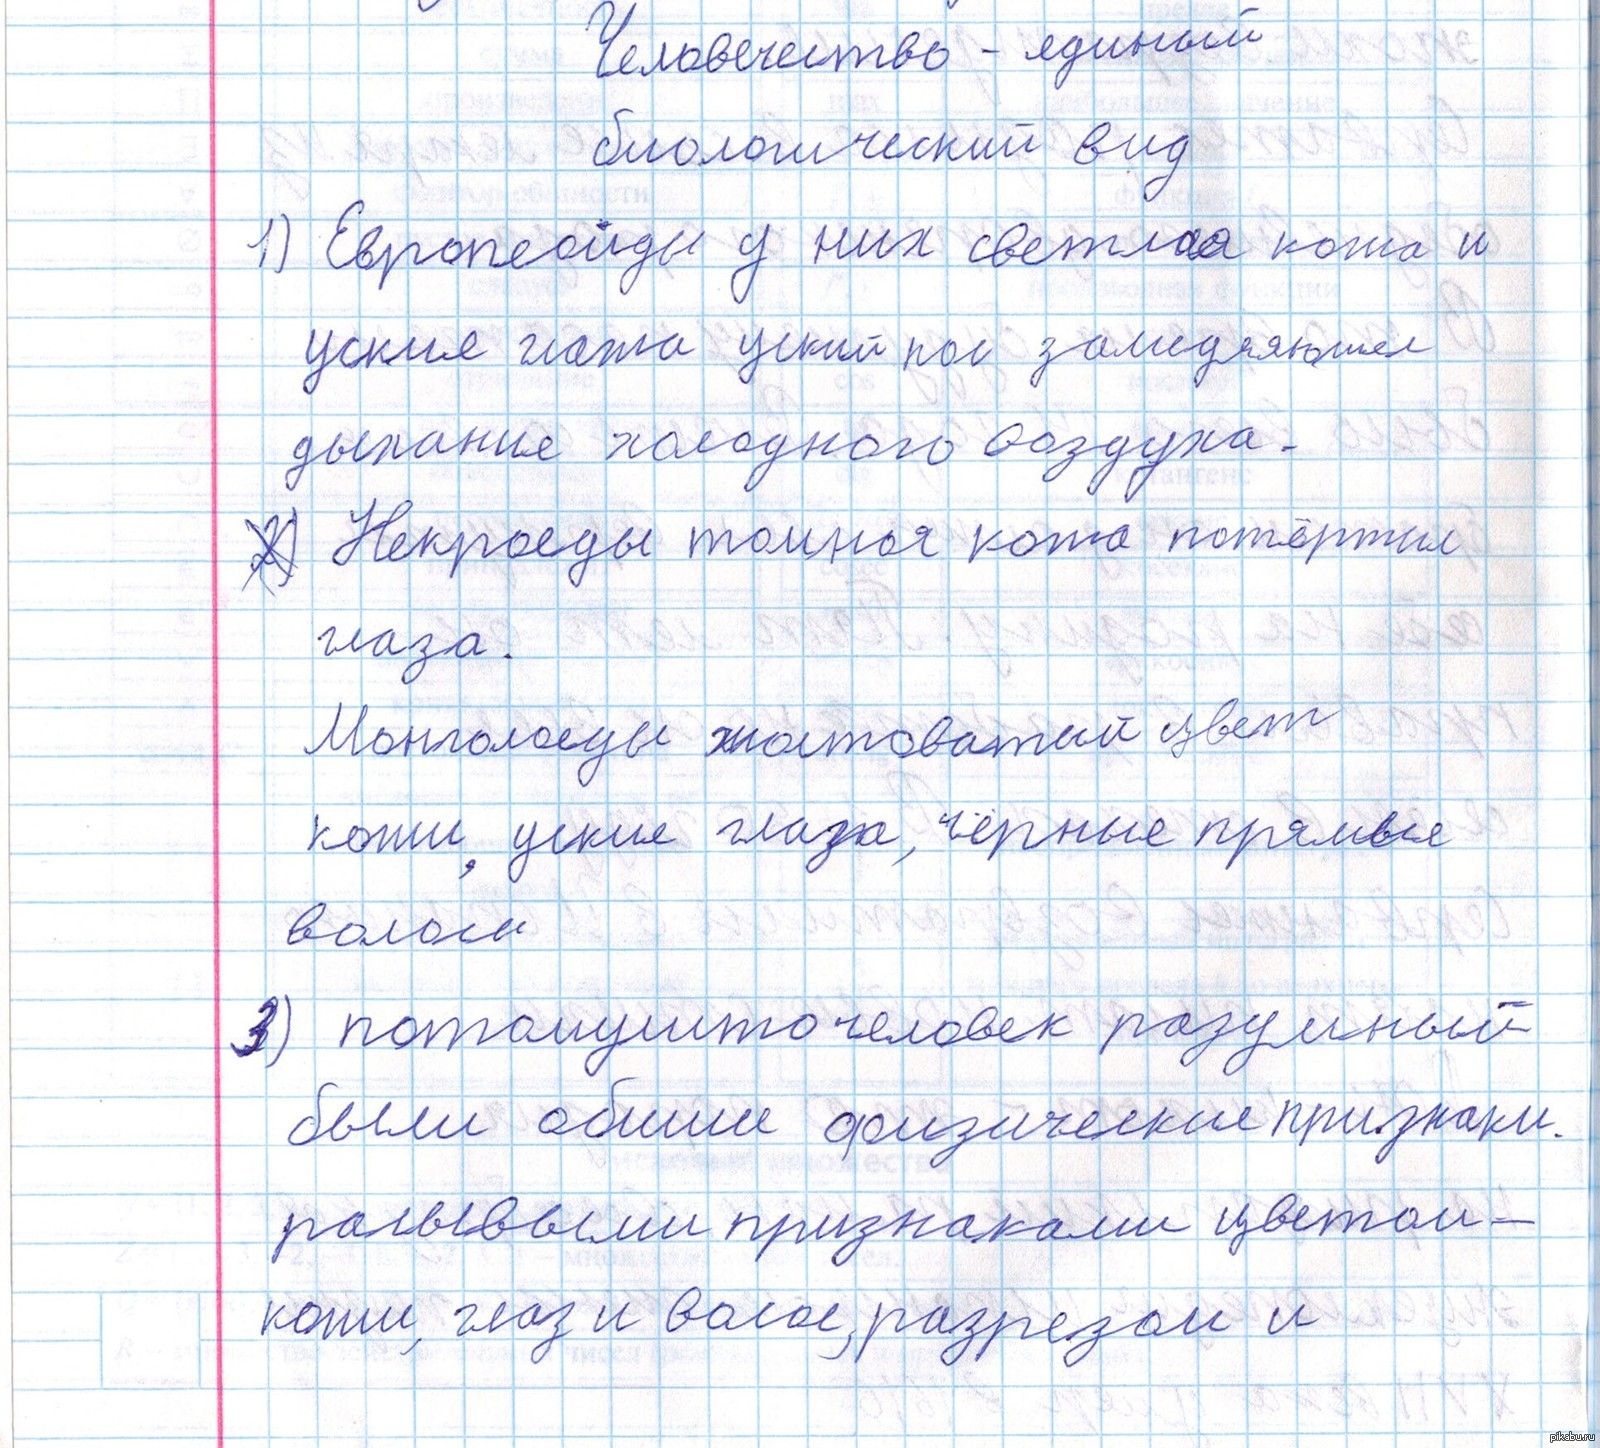 Человечество - единый
биологический вид
1) Европеойды у них светлоая кожа и
уские глажа уский нос замедляюшее
дыхание холодного воздуха.
2) Некроеды томноя кожа потёртые
глаза.
Монголоеды жолтоватый цвет
кожи, уские глаза, чёрные прямые
волосы
3) потомушто человек разумный
были обшие физические признаки.
рассывыми признаками цветом -
кожи, глаз и волос, разрезом и
pikabu.ru